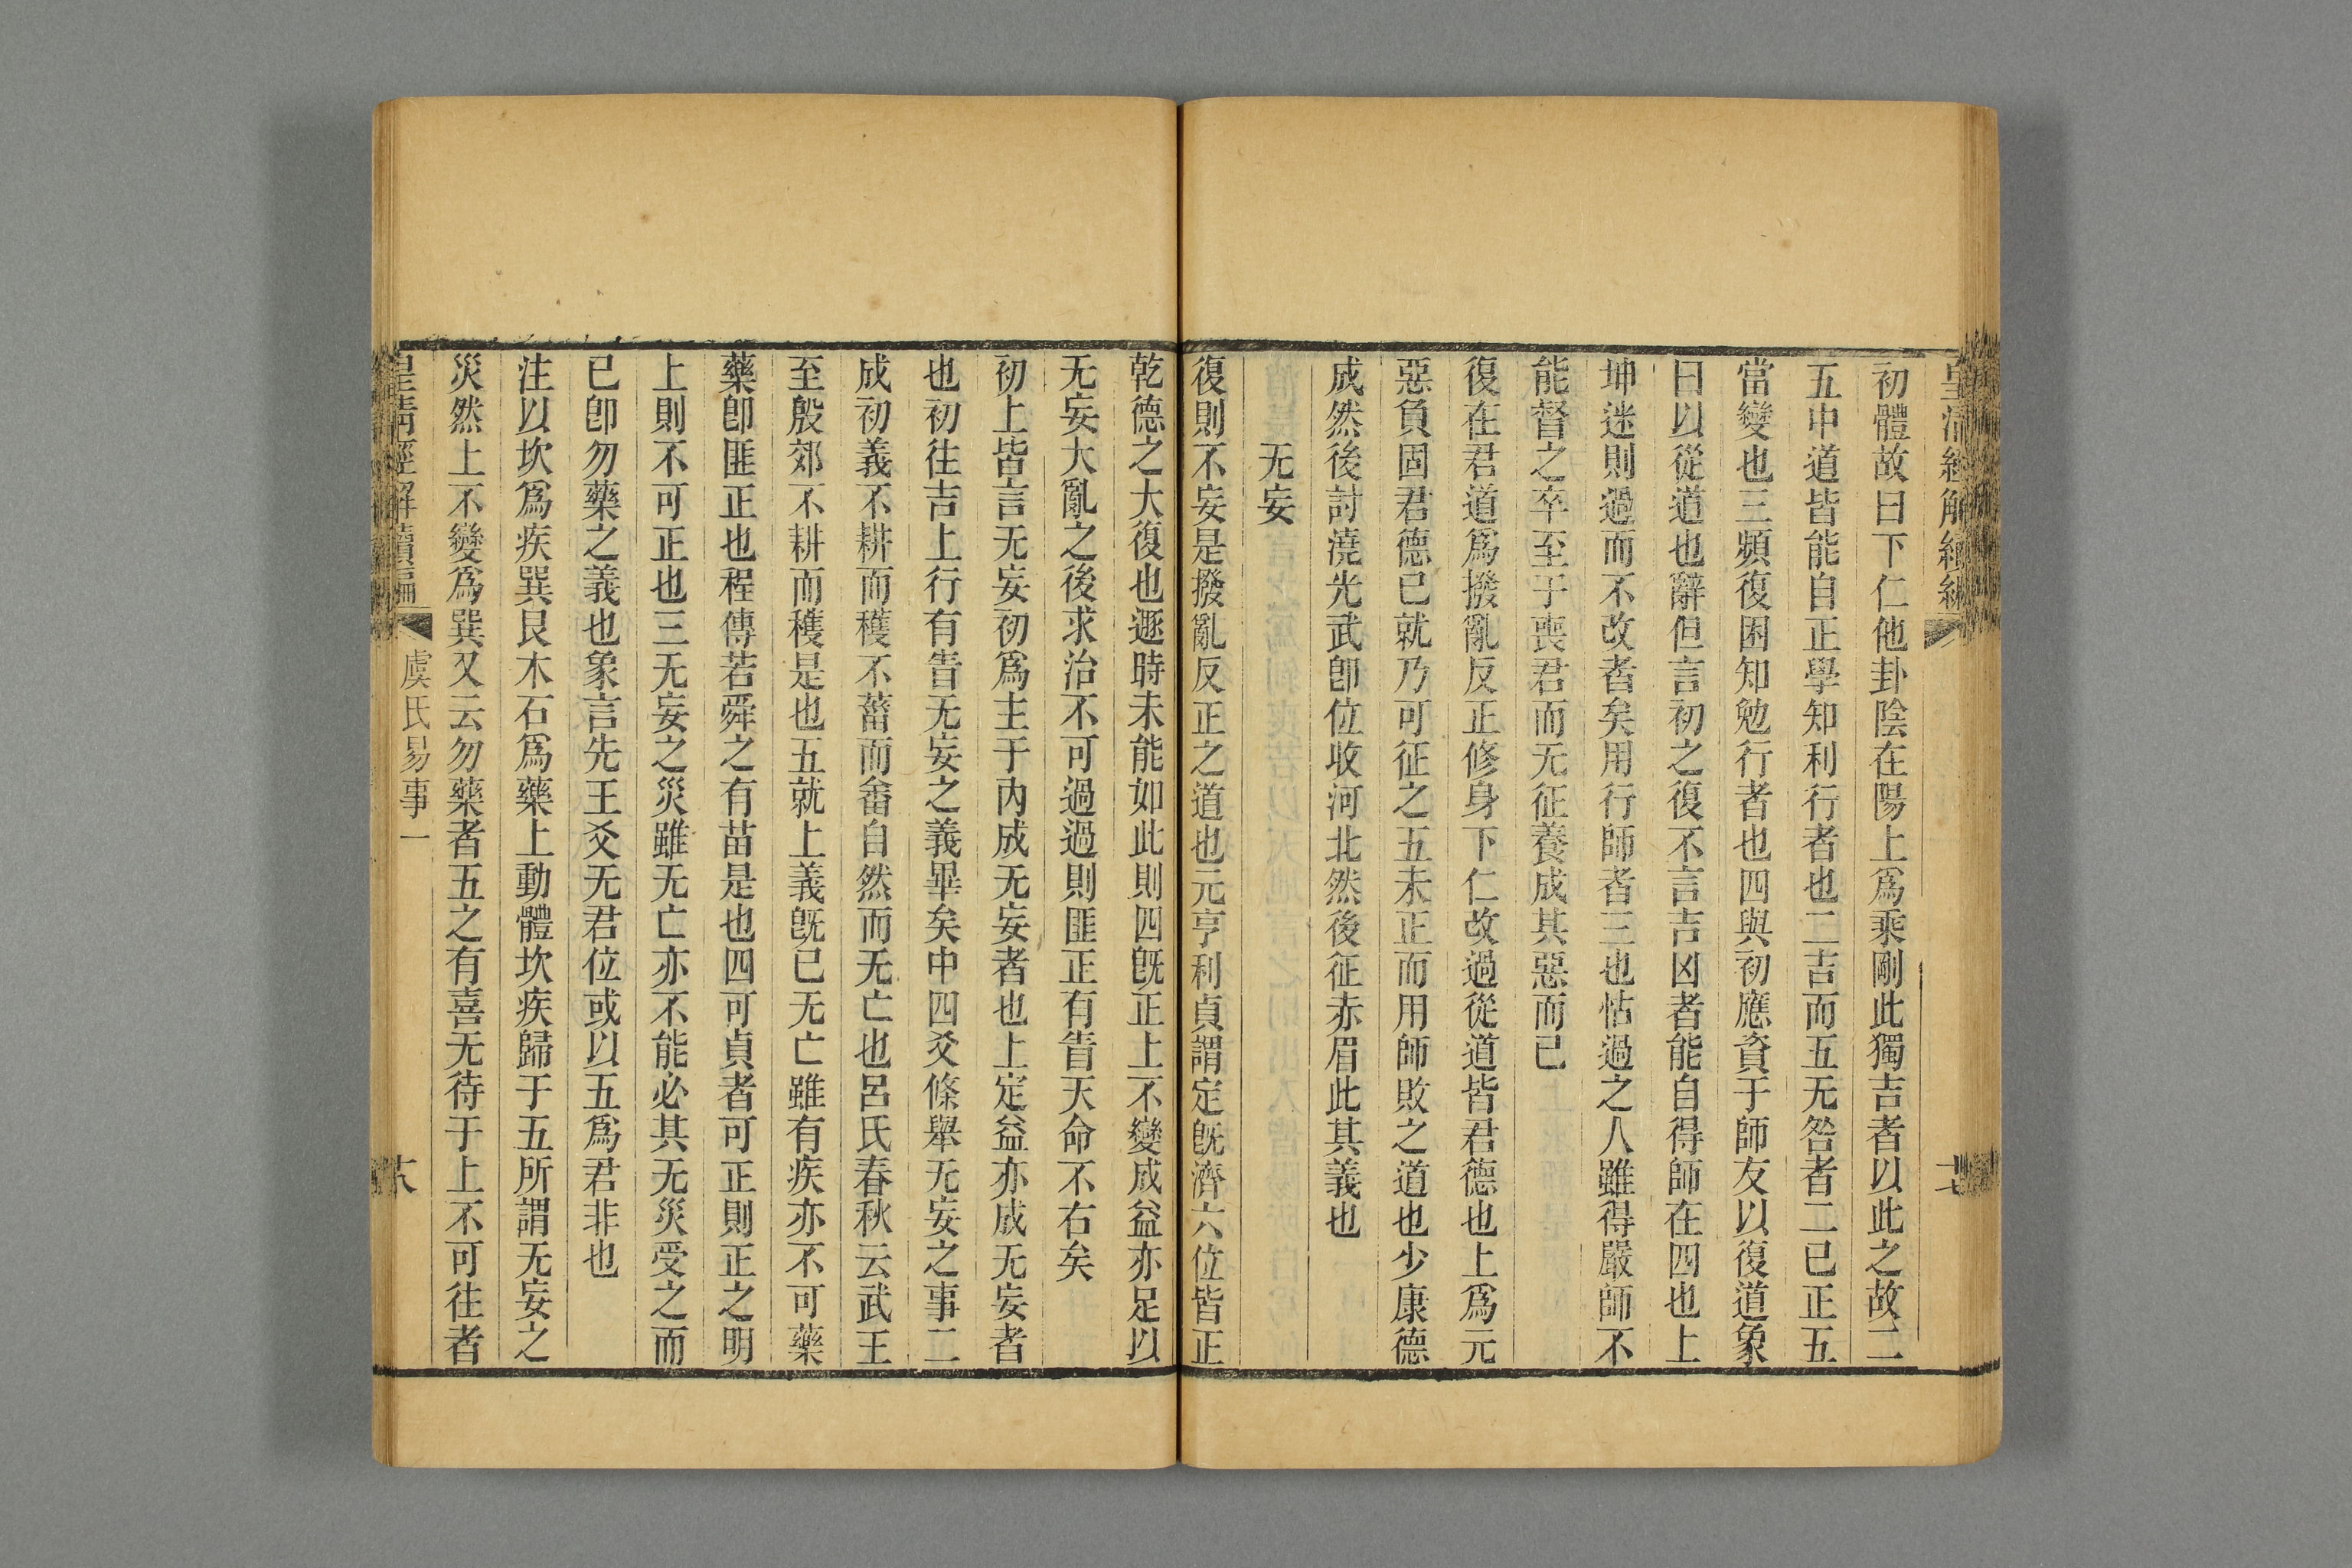 皇清經解續編
十七
初體故曰下仁他卦陰在陽上爲乘剛此獨吉者以此之故二
五中道皆能自正學知利行者也二吉而五无咎者二已正五
當變也三頻復困知勉行者也四與初應資于師友以復道象
曰以從道也辭但言初之復不言吉凶者能自得師在四也上
坤迷則過而不改者矣用行師者三也怙過之人雖得嚴師不
能督之卒至于喪君而无征養成其惡而已
復在君道爲撥亂反正修身下仁改過從道皆君德也上爲元
惡負固君德已就乃可征之五未正而用師敗之道也少康德
成然後討澆光武卽位收河北然後征赤眉此其義也
无妄
復則不妄是撥亂反正之道也元亨利貞謂定旣濟六位皆正
乾德之大復也遯時未能如此則四旣正上不變成益亦足以
无妄大亂之後求治不可過過則匪正有眚天命不右矣
初上皆言无妄初爲主于內成无妄者也上定益亦成无妄者
也初往吉上行有眚无妄之義畢矣中四爻條舉无妄之事二
成初義不耕而穫不葘而畬自然而无亡也呂氏春秋云武王
至殷郊不耕而穫是也五就上義旣已无亡雖有疾亦不可藥
藥卽匪正也程傳若舜之有苗是也四可貞者可正則正之明
上則不可正也三无妄之災雖无亡亦不能必其无災受之而
已卽勿藥之義也象言先王爻无君位或以五爲君非也
注以坎爲疾巽艮木石爲藥上動體坎疾歸于五所謂无妄之
災然上不變爲巽又云勿藥者五之有喜无待于上不可往者
皇清經解續編
虞氏易事一
十八